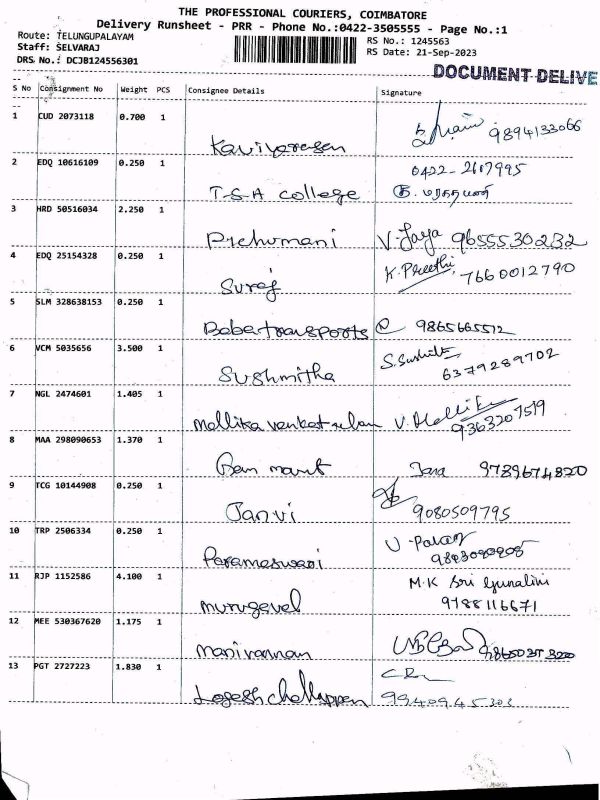 THE PROFESSIONAL COURIERS, COIMBATORE
Delivery Runsheet - PRR - Phone No.:0422-3505555 - Page No.:1
Route: TELUNGUPALAYAM
Staff: SELVARAJ
DRS No.: DCJB124556301
RS No.: 1245563
RS Date: 21-Sep-2023
DOCUMENT DELIVE
S No Consignment No Weight PCS Consignee Details Signature
1 CUD 2073118 0.700 1 Kaviyarasan 9894133066
2 EDQ 10616109 0.250 1 T-S-A college 0422-2617995
3 HRD 50516034 2.250 1 Prehumani V. Jaya 9655530232
4 EDQ 25154328 0.250 1 Suraj K. Preethi, 7660012790
5 SLM 328638153 0.250 1 Baba transports 9865665512
6 VCM 5035656 3.500 1 Sushmitha S. Sushmita 6379289702
7 NGL 2474601 1.405 1 Mallika venkat V. Mallika 9363207519
8 MAA 298090653 1.370 1 Jana 9789674820
9 TCG 10144908 0.250 1 Janvi 9080509795
10 TRP 2506334 0.250 1 Parameswari
11 RJP 1152586 4.100 1 murugavel M.K Sri Gunalini 9788116671
12 MEE 530367620 1.175 1 Manivannan
13 PGT 2727223 1.830 1 Logesh chellappan 9940945303